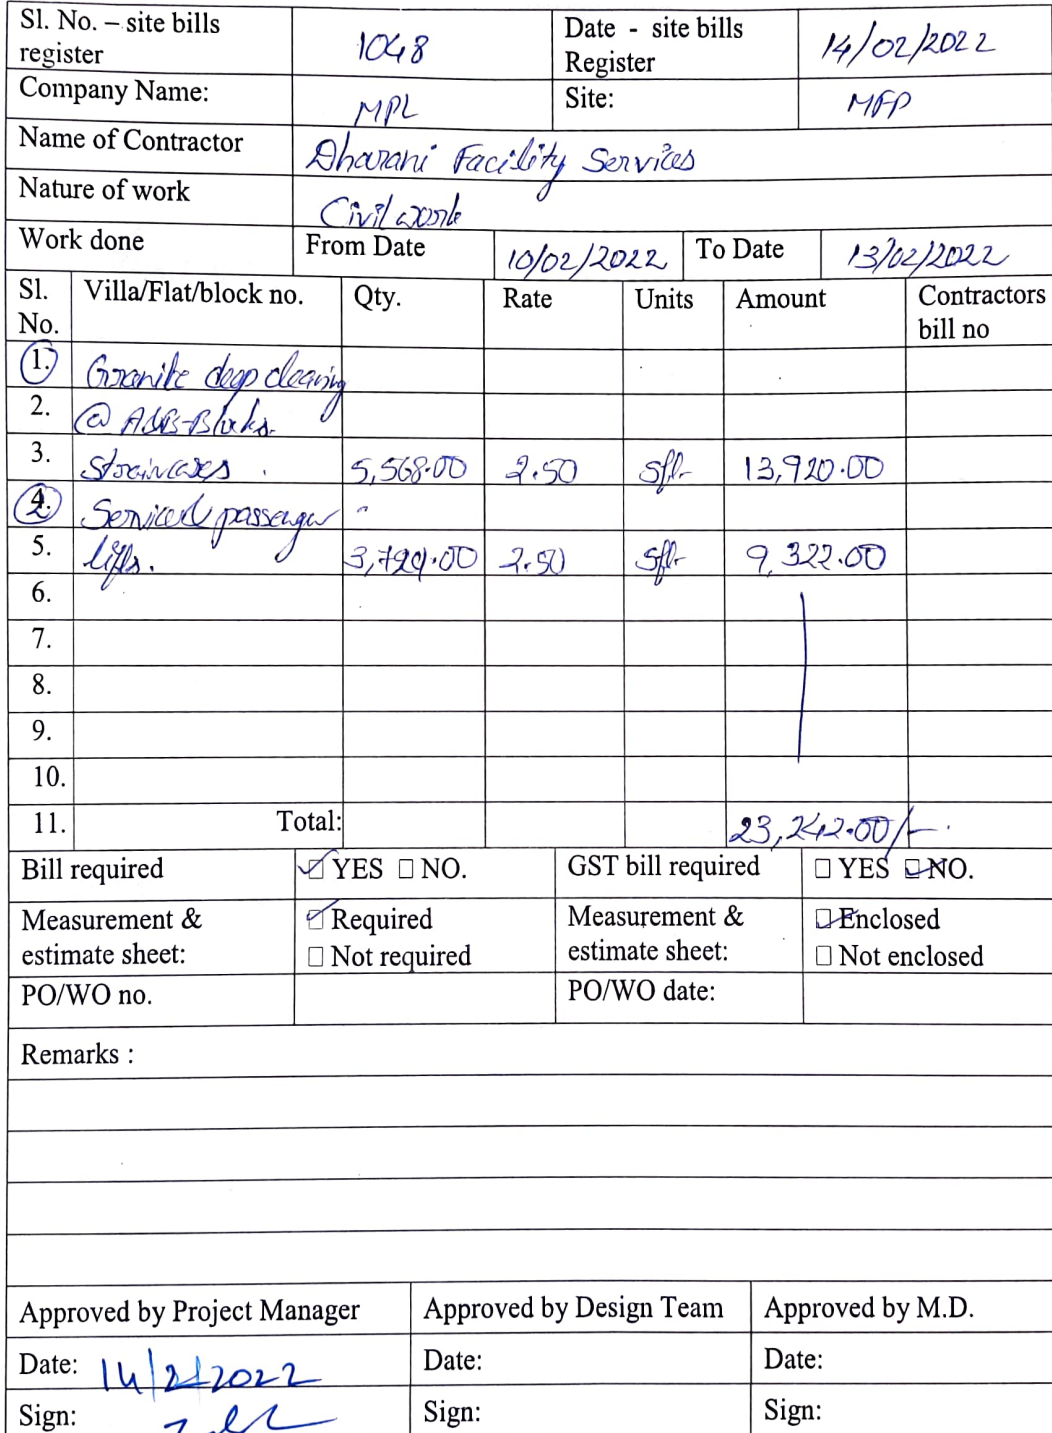 Sl. No. – site bills register 1048 Date - site bills Register 14/02/2022
Company Name: MPL Site: MFP
Name of Contractor Dharani Facility Services
Nature of work Civil work
Work done From Date 10/02/2022 To Date 13/02/2022
Sl. No. Villa/Flat/block no. Qty. Rate Units Amount Contractors bill no
1. Granite deep cleaning
2. @ A&B-Blocks.
3. Staircases 5,568.00 2.50 sft 13,920.00
4. Service & passenger
5. lifts. 2.50 sft 9,322.00
6.
7.
8.
9.
10.
11. Total: 23,242.00/-
Bill required ☑ YES □ NO. GST bill required □ YES ☑ NO.
Measurement & estimate sheet: ☑ Required □ Not required Measurement & estimate sheet: ☑ Enclosed □ Not enclosed
PO/WO no. PO/WO date:
Remarks :
Approved by Project Manager Approved by Design Team Approved by M.D.
Date: 14/2/2022 Date: Date:
Sign: Sign: Sign: